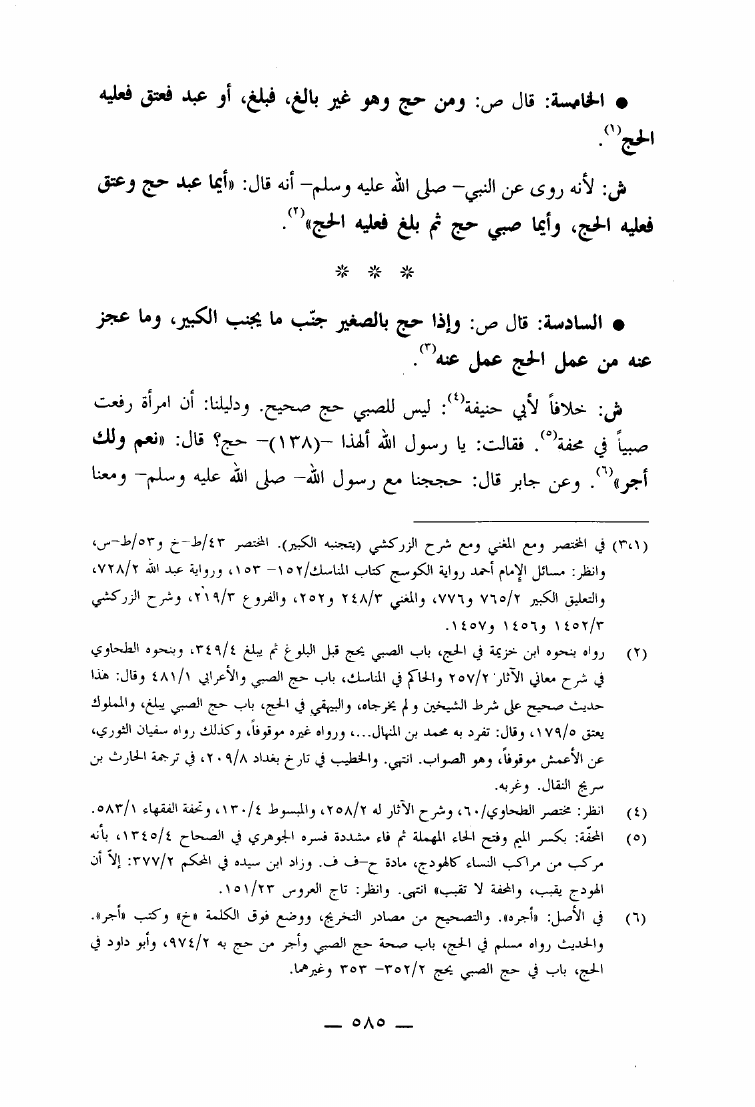 • الخامسة: قال ص: ومن حج وهو غير بالغ، فبلغ، أو عبد فعتق فعليه
الحج(١).
ش: لأنه روى عن النبي- صلى الله عليه وسلم- أنه قال: «أيما عبد حج وعتق
فعليه الحج، وأيما صبي حج ثم بلغ فعليه الحج»(٢).
* * *
• السادسة: قال ص: وإذا حج بالصغير جنّب ما يجنب الكبير، وما عجز
عنه من عمل الحج عمل عنه(٣).
ش: خلافاً لأبي حنيفة(٤): ليس للصبي حج صحيح. ودليلنا: أن امرأة رفعت
صبياً في محفة(٥). فقالت: يا رسول الله ألهذا -(١٣٨)- حج؟ قال: «نعم ولك
أجر»(٦). وعن جابر قال: حججنا مع رسول الله- صلى الله عليه وسلم- ومعنا
(٣،١) في المختصر ومع المغني ومع شرح الزركشي (يتجنبه الكبير). المختصر ٤٣/ط-خ و٥٣/ط-س،
وانظر: مسائل الإمام أحمد رواية الكوسج كتاب المناسك/١٥٢- ١٥٣، ورواية عبد الله ٧٢٨/٢،
والتعليق الكبير ٧٦٥/٢ و٧٧٦، والمغني ٢٤٨/٣ و٢٥٢، والفروع ٢١٩/٣، وشرح الزركشي
١٤٥٢/٣ و١٤٥٦ و١٤٥٧.
(٢) رواه بنحوه ابن خزيمة في الحج، باب الصبي يحج قبل البلوغ ثم يبلغ ٣٤٩/٤، وبنحوه الطحاوي
في شرح معاني الآثار ٢٥٧/٢ والحاكم في المناسك، باب حج الصبي والأعرابي ٤٨١/١ وقال: هذا
حديث صحيح على شرط الشيخين ولم يخرجاه، والبيهقي في الحج، باب حج الصبي يبلغ، والمملوك
يعتق ١٧٩/٥، وقال: تفرد به محمد بن المنهال...، ورواه غيره موقوفاً، وكذلك رواه سفيان الثوري،
عن الأعمش موقوفاً، وهو الصواب. انتهى. والخطيب في تارخ بغداد ٢٠٩/٨، في ترجمة الحارث بن
سريج النقال. وغربه.
(٤) انظر: مختصر الطحاوي/٦٠، وشرح الآثار له ٢٥٨/٢، والمبسوط ١٣٠/٤، وتحفة الفقهاء ٥٨٣/١.
(٥) المحفّة: بكسر الميم وفتح الحاء المهملة ثم فاء مشددة فسره الجوهري في الصحاح ١٣٤٥/٤، بأنه
مركب من مراكب النساء كالهودج، مادة ح-ف ف. وزاد ابن سيده في المحكم ٣٧٧/٢: إلاّ أن
الهودج يقبب، والمحفة لا تقبب» انتهى. وانظر: تاج العروس ١٥١/٢٣.
(٦) في الأصل: «أجره». والتصحيح من مصادر التخريج، ووضع فوق الكلمة «خ» وكتب «أجر».
والحديث رواه مسلم في الحج، باب صحة حج الصبي وأجر من حج به ٩٧٤/٢، وأبو داود في
الحج، باب في حج الصبي يحج ٣٥٢/٢- ٣٥٣ وغيرهما.
— ٥٨٥ —